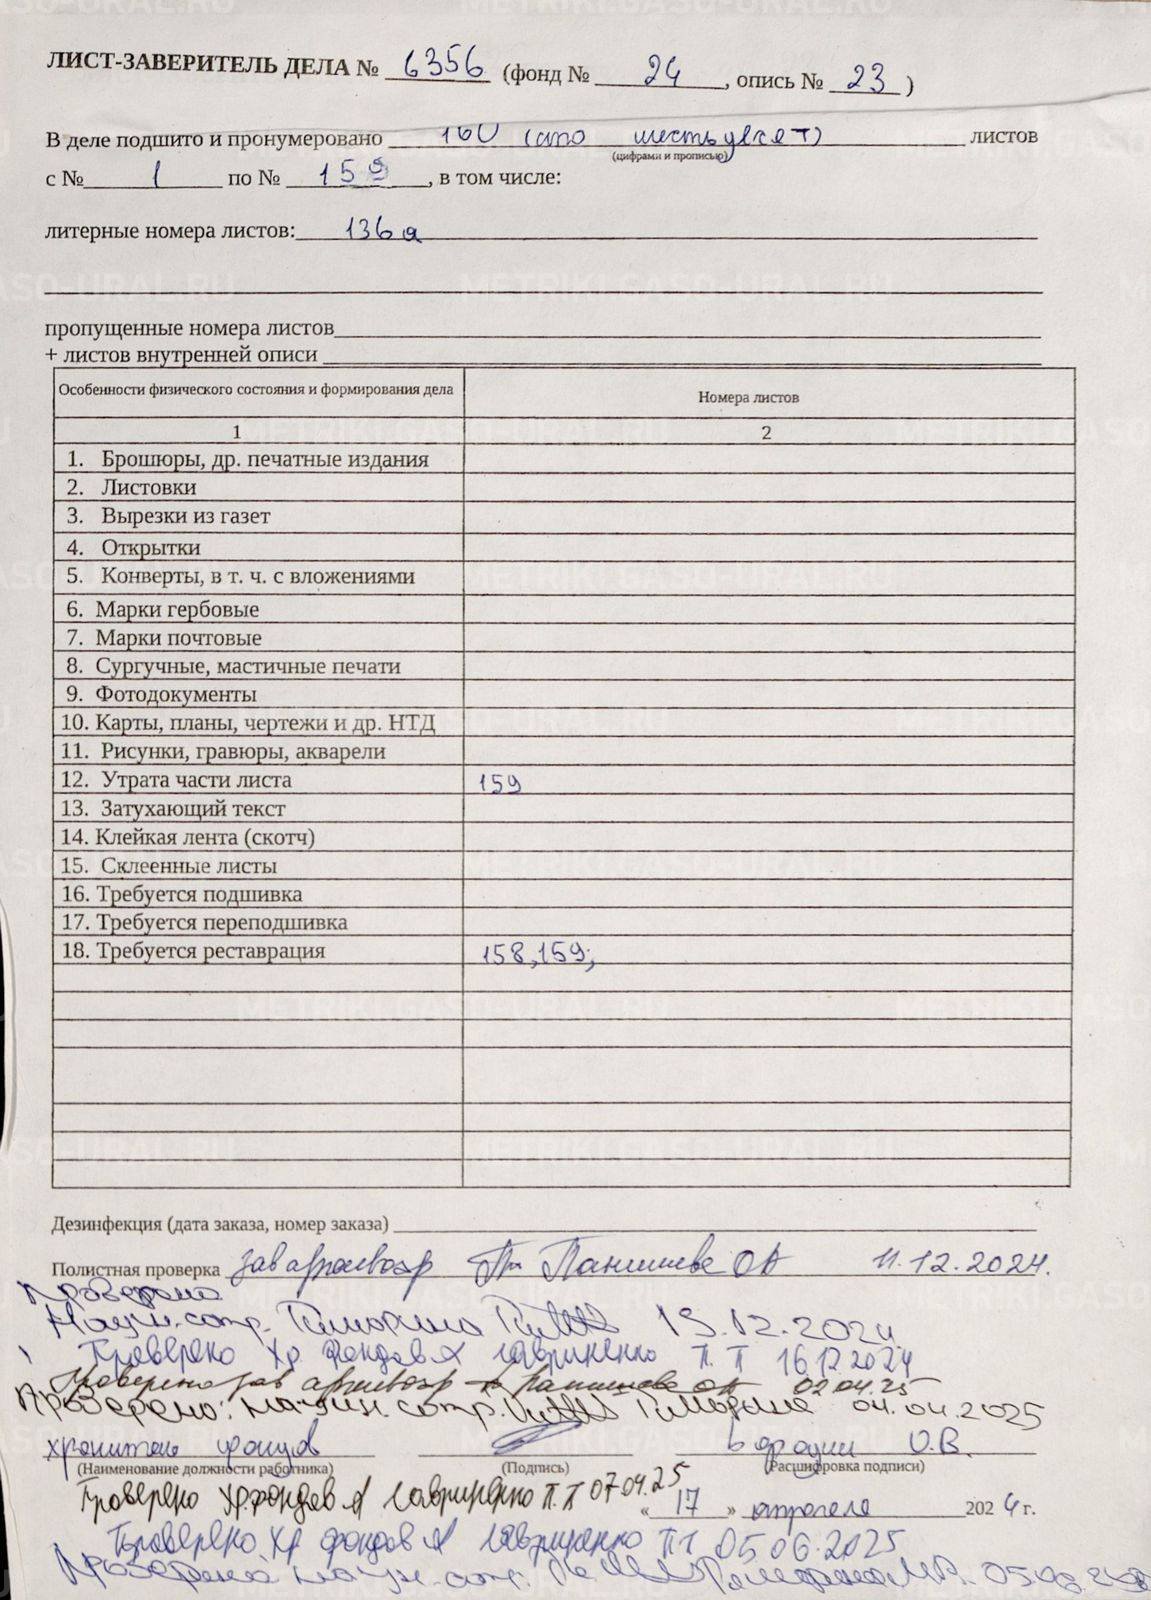 ЛИСТ-ЗАВЕРИТЕЛЬ ДЕЛА № 6356 (фонд № 24, опись № 23)
В деле подшито и пронумеровано 160 (сто шестьдесят) листов
(цифрами и прописью)
с № 1 по № 159, в том числе:
литерные номера листов: 136а
пропущенные номера листов
+ листов внутренней описи
Особенности физического состояния и формирования дела Номера листов
1 2
1. Брошюры, др. печатные издания
2. Листовки
3. Вырезки из газет
4. Открытки
5. Конверты, в т. ч. с вложениями
6. Марки гербовые
7. Марки почтовые
8. Сургучные, мастичные печати
9. Фотодокументы
10. Карты, планы, чертежи и др. НТД
11. Рисунки, гравюры, акварели
12. Утрата части листа 159
13. Затухающий текст
14. Клейкая лента (скотч)
15. Склеенные листы
16. Требуется подшивка
17. Требуется переподшивка
18. Требуется реставрация 158, 159;
Дезинфекция (дата заказа, номер заказа)
Полистная проверка зав архивохр 11.12.2024.
Проверено
Научн. сотр. 13.12.2024
Проверено хр. фондов Гавриненко П.П 16 12 2024
Проверено зав архивохр 02 04.25
Проверено: научн. сотр. 04.04.2025
хранитель фондов О.В.
(Наименование должности работника) (Подпись) (Расшифровка подписи)
Проверено хр. фондов Гавриненко П.П 07.04.25
«17» апреля 2024 г.
Проверено хр фондов Гавриненко П П 05 06.2025
Проверено научн. сотр.
METRIKI.GASO-URAL.RU